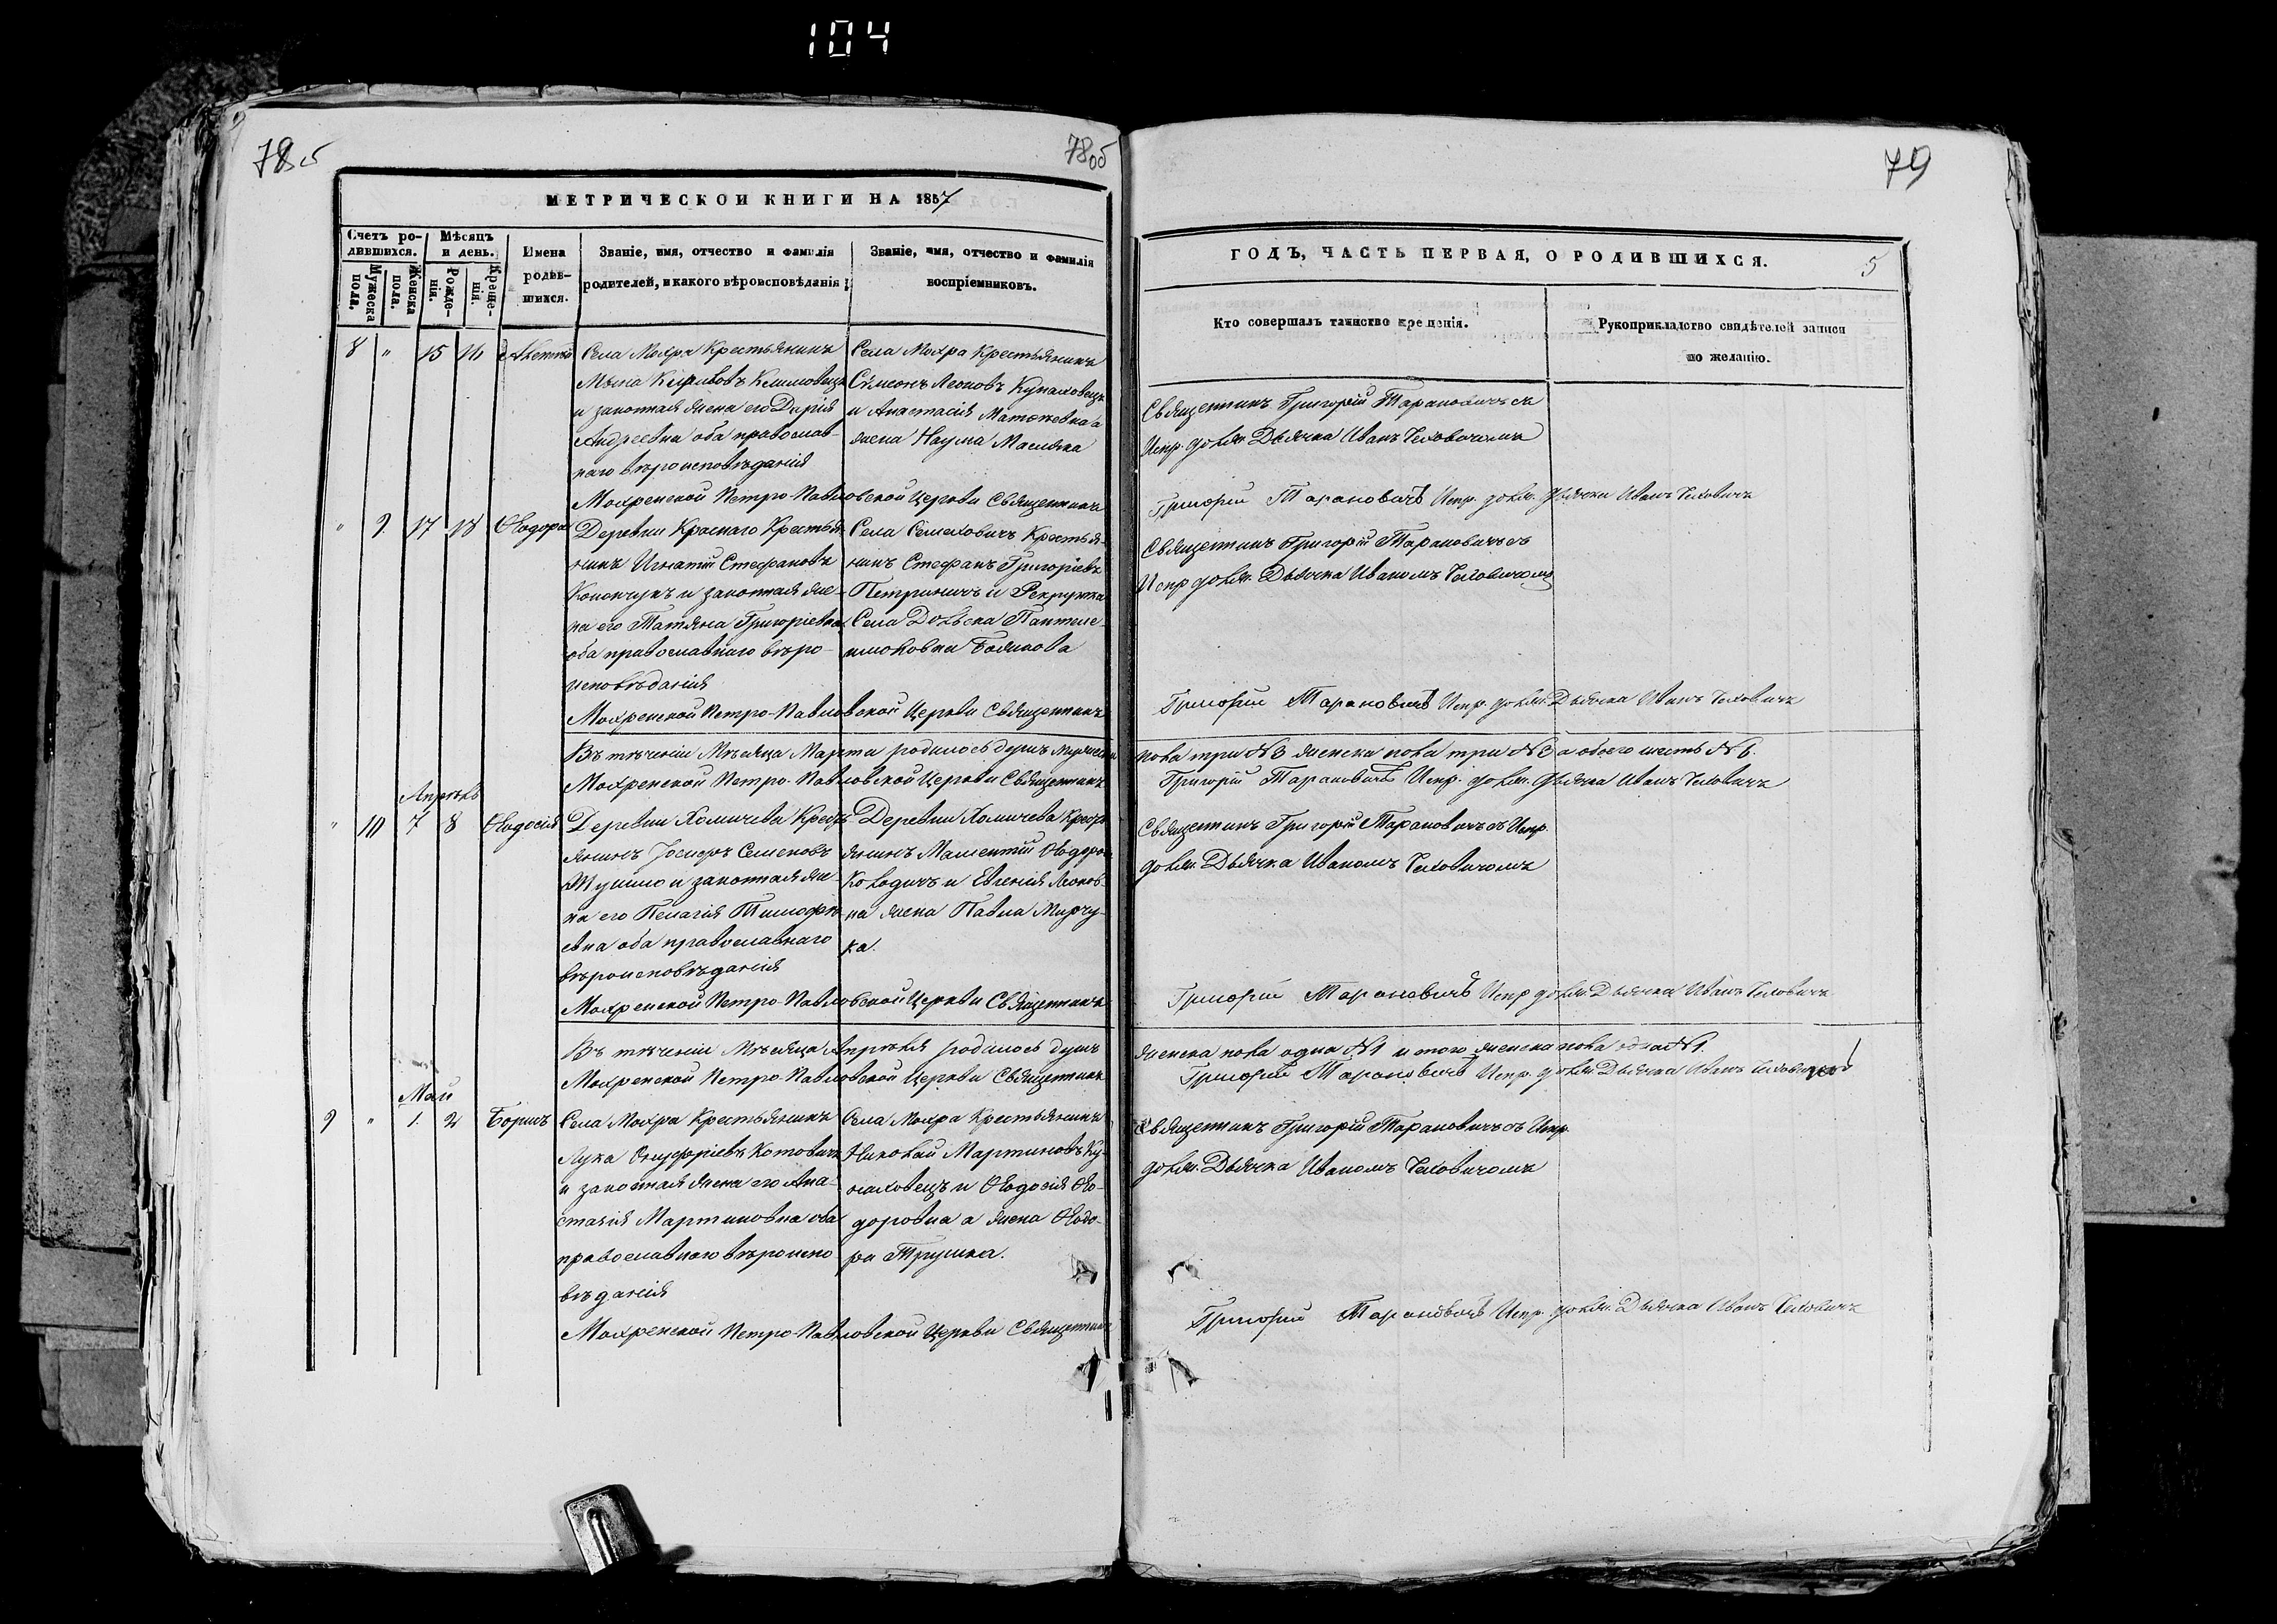 104
78об
79
МЕТРИЧЕСКОЙ КНИГИ НА 1857
Счетъ родившихся.
Мѣсяцъ и день.
Имена родившихся.
Званіе, имя, отчество и фамилія
родителей, и какого вѣроисповѣданія.
Званіе, имя, отчество и фамилія
воспріемниковъ.
Мужеска пола.
Женска пола.
Рожденія.
Крещенія.
8 " 15 16
Села Мохра Крестьянинъ
и законная жена его Дарія
Андреевна оба православ-
наго вѣроисповѣданія
Села Мохра Крестьянинъ
Сѵмеонъ Леоновъ Кунаховецъ
и Анастасія
жена Наума Масляка
Мохренской Петро-Павловской Церкви Священникъ
" 9 17 18 Ѳеодора
Деревни Краснаго Крестья-
нинъ Игнатій Стефановъ
и законная же-
на его Татьяна Григоріевна
оба православнаго вѣро-
исповѣданія
Села Крестья-
нинъ Стефанъ Григоріевъ
и Рекрутка
Села
Мохренской Петро-Павловской Церкви Священникъ
Въ теченіи Мѣсяца Марта родилось душъ мужеска
Мохренской Петро-Павловской Церкви Священникъ
Апрѣль
" 10 7 8 Ѳеодосія
Деревни Хомичева Крест-
янинъ Іосифъ Семеновъ
и законная же-
на его Пелагія Тимофѣ-
евна оба православнаго
вѣроисповѣданія
Деревни Хомичева Крест-
янинъ
Колодичъ и Евгенія Леонов-
на жена Павла Мирчу-
ка.
Мохренской Петро-Павловской Церкви Священникъ
Въ теченіи Мѣсяца Апрѣля родилось душъ
Мохренской Петро-Павловской Церкви Священникъ
Май
9 " 1 2 Борисъ
Села Мохра Крестьянинъ
Лука Онуфріевъ Котовичъ
и законная жена его Ана-
стасія Мартиновна оба
православнаго вѣроиспо-
вѣданія
Села Мохра Крестьянинъ
Николай Мартиновъ Ку-
наховецъ и Ѳеодосія Ѳео-
доровна а жена Ѳеодо-
ра Трушка.
Мохренской Петро-Павловской Церкви Священникъ
ГОДЪ, ЧАСТЬ ПЕРВАЯ, О РОДИВШИХСЯ.
5
Кто совершалъ таинство крещенія.
Рукоприкладство свидѣтелей записи
по желанію.
Священникъ Григорій Тарановичъ съ
Испр. долж. Дьячка
Григорій Тарановичъ Испр. долж. Дьячка Иванъ
Священникъ Григорій Тарановичъ съ
Испр. долж. Дьячка Иваномъ
Григорій Тарановичъ Испр. долж. Дьячка Иванъ
пола три №3 женска пола три №3 а обоего шесть №6.
Григорій Тарановичъ Испр. долж. Дьячка Иванъ
Священникъ Григорій Тарановичъ съ Испр.
долж. Дьячка Иваномъ
Григорій Тарановичъ Испр. долж. Дьячка Иванъ
женска пола одна №1 итого женска пола одна №1.
Григорій Тарановичъ Испр. долж. Дьячка Иванъ
Священникъ Григорій Тарановичъ съ Испр.
долж. Дьячка Иваномъ
Григорій Тарановичъ Испр. долж. Дьячка Иванъ